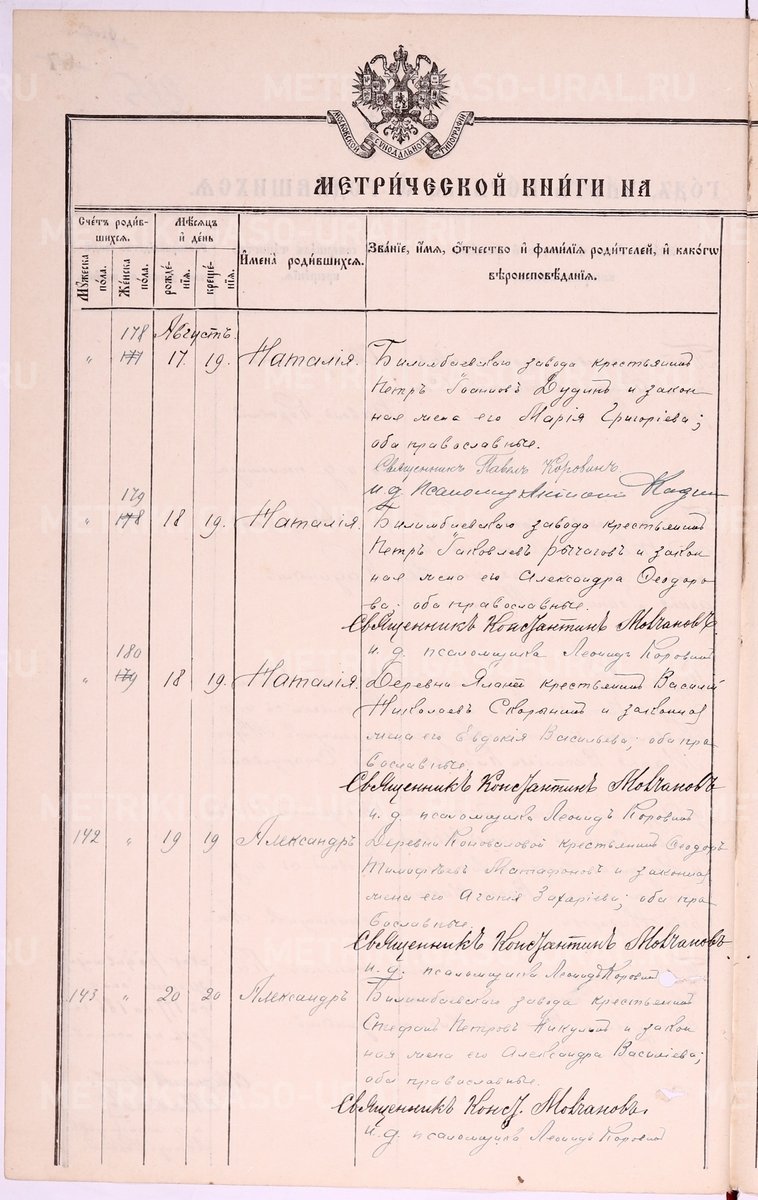 METRIKI.GASO-URAL.RU
МОСКОВСКОЙ СѴНОДАЛЬНОЙ ТИПОГРАФІИ
МЕТРИ́ЧЕСКОЙ КНИ́ГИ НА
Сче́тъ роди́вшихся.
Мѣ́сяцъ и҆ де́нь
И҆мена̀ роди́вшихся.
Зва́нїе, и҆́мя, ѻ҆́тчество и҆ фами́лїя роди́телей, и҆ како́гѡ вѣроисповѣ́данїя.
Му́жеска по́ла.
Же́нска по́ла.
рожде́нїя.
креще́нїя.
178 Августъ.
" 177 17. 19. Наталія. Билимбаевскаго завода крестьянинъ
Петръ Іоанновъ Дудинъ и закон-
ная жена его Марія Григоріева;
оба православные.
Священникъ Павелъ Коровинъ
и.д. Псаломщ.
179
" 178 18 19. Наталія. Билимбаевскаго завода крестьянинъ
Петръ Іаковлевъ Рычаговъ и закон-
ная жена его Александра Ѳеодоро-
ва; оба православные.
Священникъ Константинъ Молчановъ.
и. д. псаломщика Леонидъ Коровинъ
180
" 179 18 19. Наталія. Деревни крестьянинъ Василій
Николаевъ Скорынинъ и законная
жена его Евдокія Васильева; оба пра-
вославные.
Священникъ Константинъ Молчановъ
и. д. псаломщика Леонидъ Коровинъ
142 " 19 19 Александръ Деревни Коноваловой крестьянинъ Ѳеодоръ
Тимофѣевъ Матафоновъ и законная
жена его Агапія Захаріева; оба пра-
вославные.
Священникъ Константинъ Молчановъ
и. д. псаломщика Леонидъ Коровинъ
143 " 20 20 Александръ Билимбаевскаго завода крестьянинъ
Стефанъ Петровъ Никулинъ и закон-
ная жена его Александра Василіева;
оба православные.
Священникъ Конст. Молчановъ.
и. д. псаломщика Леонидъ Коровинъ